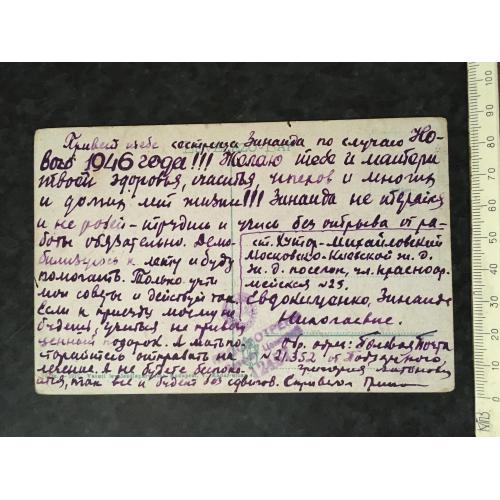 Привет тебе сестренка Зинаида по случаю Но-
вого 1946 года!!! Желаю тебе и матери
твоей здоровья, счастья успехов и многих
и долгих лет жизни!!! Зинаида не теряйся
и не робей - трудись и учись без отрыва от ра-
боты обязательно. Демо-
билизуюсь к лету и буду
помогать. Только учти
мои советы и действуй так.
Если к приезду моему не
будешь учиться не привезу
ценный подарок. А мать по-
старайтесь отправить на
лечение. А не будете беспоко-
ится, так все и будет без сдвигов. С приветом
ст. Хутор-Михайловский
Московско-Киевской ж.д.
Ж.д. поселок, ул. Красноар-
мейская №23.
Евдокиценко, Зинаиде
Николаевне.
Обр. адрес: Полевая Почта
№21352 от Подзарного,
Григория Антонов
100
90
80
70
60
50
40
30
20
10
0